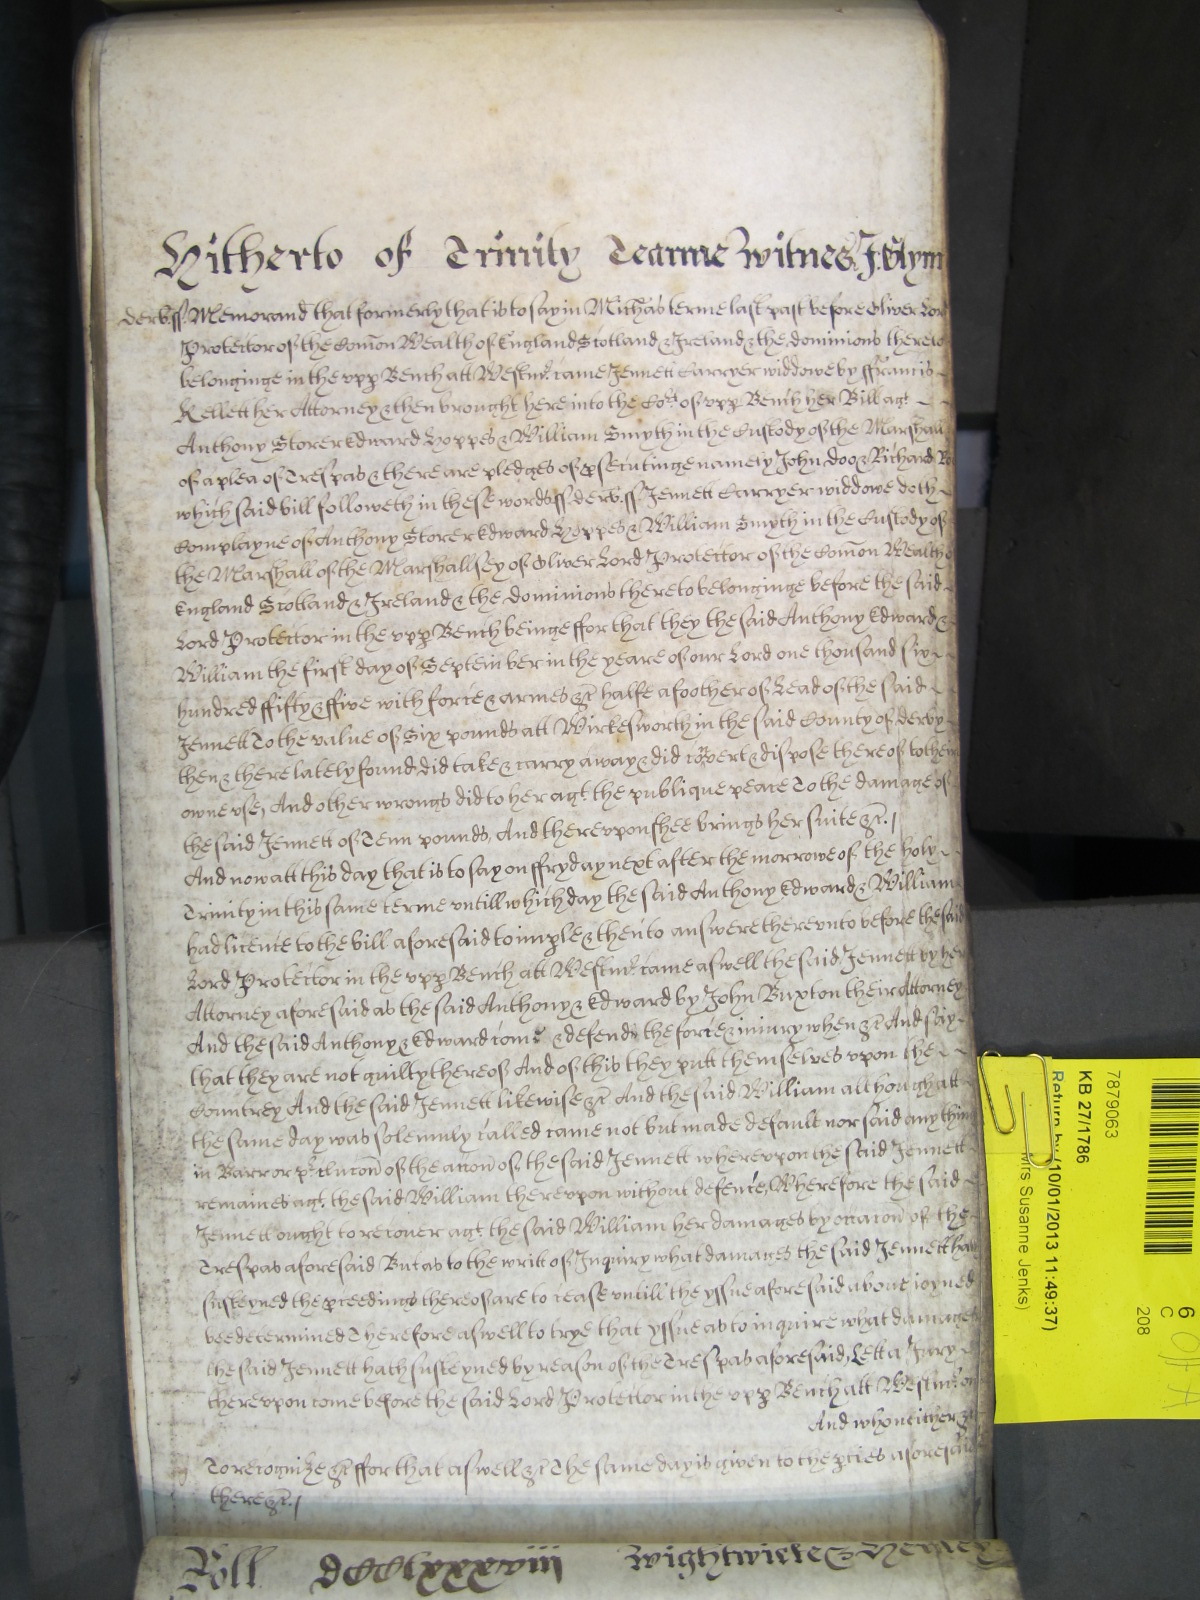 Hitherto of Trinity Tearme Witnes J: Glynn
derb. ss. Memorand that formerly that is to say in Michas terme last past before Oliver Lord
Protector of the Comon Wealth of England Scotland & Ireland & the dominions thereto
belonginge in the upp Bench att Westmr. came Jennett Carryer widdowe by ffrancis
Kellett her Attorney & then brought here into the Cort. of upp Bench her Bill agt
Anthony Storer Edward Hoppes & William Smyth in the Custody of the Marshall
of a plea of Trespas & there are pledges of psecutinge namely John doo & Richard
which said bill followeth in these words ss. derb. ss. Jennett Carryer widdowe doth
Complayne of Anthony Storer Edward Hoppes & William Smyth in the Custody of
the Marshall of the Marshallsey of Oliver Lord Protector of the Comon Wealth
England Scotland & Ireland & the dominions thereto belonginge before the said
Lord Protector in the upp Bench beinge ffor that they the said Anthony Edward &
William the first day of September in the yeare of our Lord one thousand six
hundred ffifty & ffive with force & armes &c halfe a foother of Lead of the said
Jennett To the value of Six pounds att Wirkesworth in the said County of derby
then & there lately found did take & carry away & did covert & dispose thereof to their
owne use, And other wrongs did to her agt. the publique peace To the damage of
the said Jennett of Tenn pounds, And thereupon shee brings her suite &c.
And now att this day that is to say on ffryday next after the morrowe of the holy
Trinity in this same terme untill which day the said Anthony Edward & William
had licence to the bill aforesaid to imple & then to answere thereunto before the said
Lord Protector in the upp Bench att Westmr. came aswell the said Jennett by her
Attorney aforesaid as the said Anthony & Edward by John Buxton their Attorney
And the said Anthony & Edward come & defend the force & iniury when &c And say
that they are not guilty thereof And of this they putt themselves upon the
Countrey And the said Jennett likewise &c And the said William although att
the same day was solemnly called came not but made default nor said any thing
in Barr or pclucon of the accon of the said Jennett whereupon the said Jennett
remaines agt. the said William thereupon without defence, Wherefore the said
Jennett ought to recover agt. the said William her damages by occacon of the
Trespas aforesaid But as to the writt of Inquiry what damages the said Jennett hath
susteyned the pceedings thereof are to cease untill the yssue aforesaid above ioyned
bee determined Therefore aswell to trye that yssue as to inquire what damages
the said Jennett hath susteyned by reason of the Trespas aforesaid, Lett a Jury
thereupon come before the said Lord Protector in the upp Bench att Westmr. on
And who neither &c
To recognize &c ffor that aswell &c The same day is given to the pties aforesaid
there &c.
Roll dcclxxxviii Wightwicke &
7879063
KB 27/1786
Return by (10/01/2013 11:49:37)
Mrs Susanne Jenks)
6
C
208